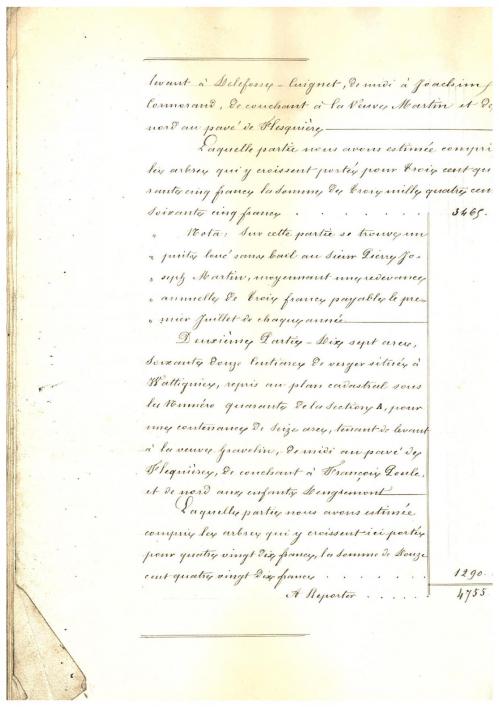 levant à Delefosse-Cuignet, de midi à Joachim
Connorand, de couchant à la Veuve Martin et de
nord au pavé de Flesquière
Laquelle partie nous avons estimée compri
les arbres qui y croissent portés pour trois cent qua
rante cinq francs la somme de trois mille quatre cen
soixante cinq francs . . . . . . . 3465.
" Nota: Sur cette partie se trouve un
" puits loué sans bail au sieur Pierre Jo-
" seph Martin, moyennant une redevance
" annuelle de trois francs payable le pre-
" mier Juillet de chaque année
Deuxième Partie - Dix sept ares,
soixante douze centiares de verger situés à
Wattignies, repris au plan cadastral sous
le Numéro quarante de la section A, pour
une contenance de seize ares, tenant de levant
à la veuve Gravelin, de midi au pavé de
Flequières, de couchant à François Poule
et de nord aux enfants Dengremont
Laquelle partie nous avons estimée
compris les arbres qui y croissent ici portés
pour quatre vingt dix francs, la somme de Douze
cent quatre vingt dix francs . . . . . . 1290.
A Reporter . . . . . 4755.